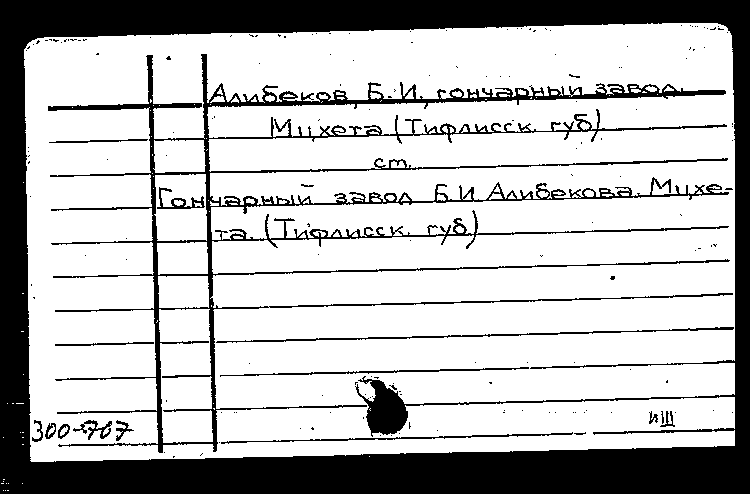 Алибеков, Б. И., гончарный завод.
Мцхета (Тифлисск. губ)
ст.
Гончарный завод Б. И. Алибекова. Мцхе-
та. (Тифлисск. губ.)
300-707